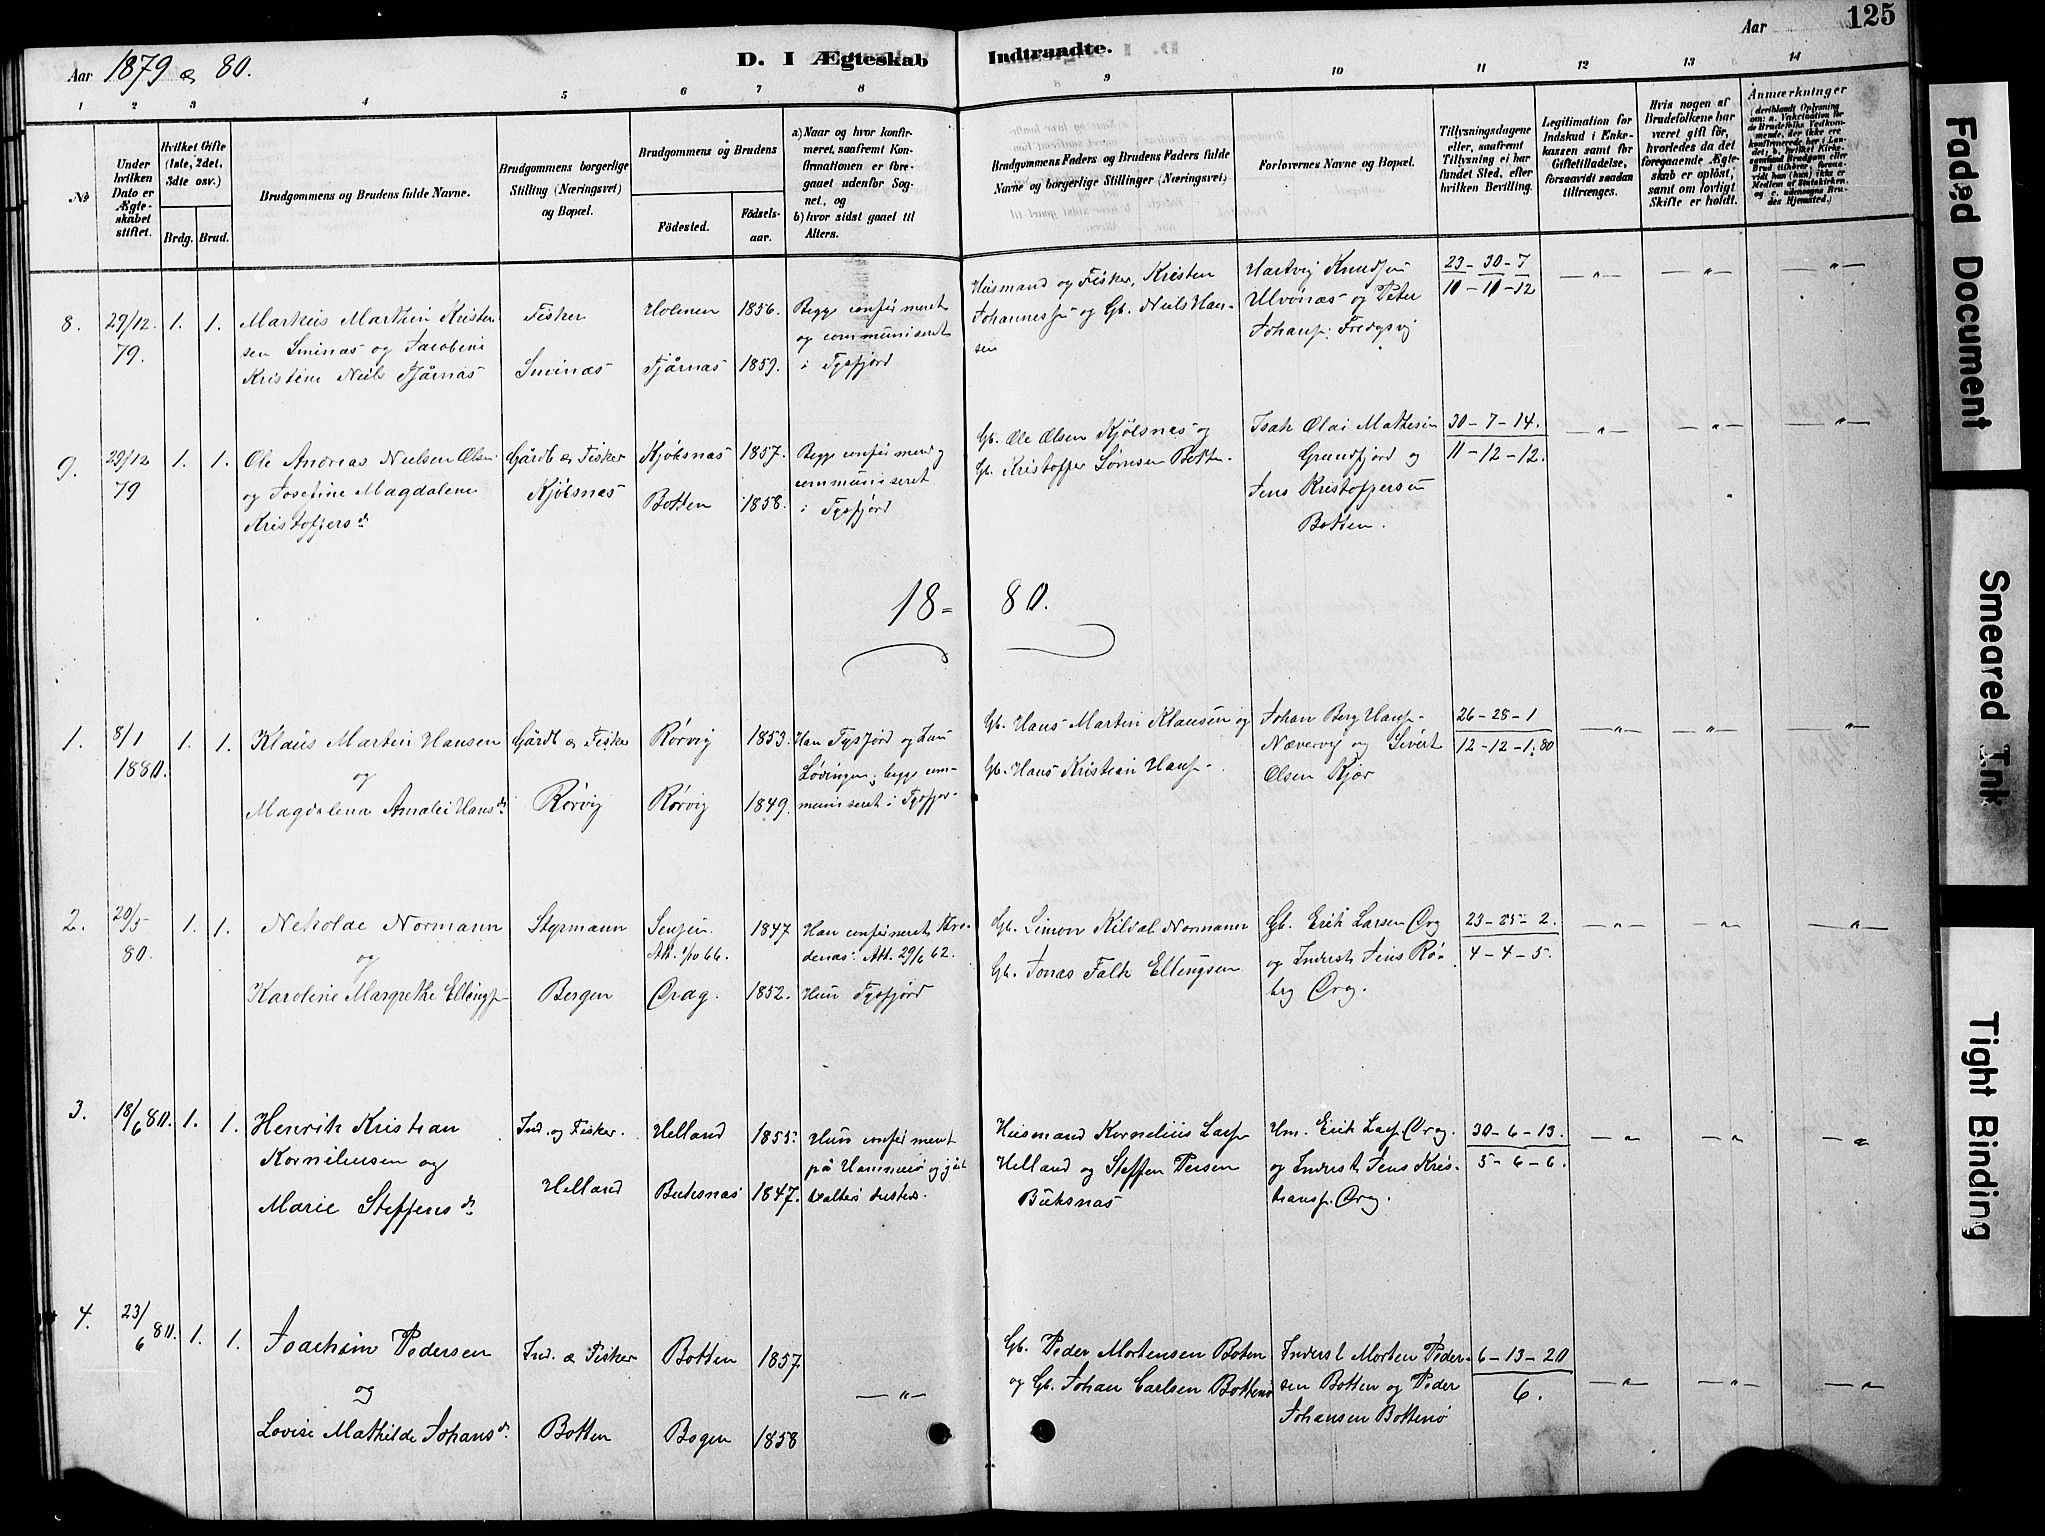 Aar 1879 & 80.
D. I Ægteskab Indtraadte.
Aar 125
1 2 3 4 5 6 7 8 9 10 11 12 13 14
№
Under hvilken Dato er Ægteskabet stiftet.
Hvilket Gifte (1ste, 2det, 3die osv.)
Brdg. Brud.
Brudgommens og Brudens fulde Navne.
Brudgommens borgerlige Stilling (Næringsvei) og Bopæl.
Brudgommens og Brudens
Födested.
Födselsaar.
a) Naar og hvor konfirmeret, saafremt Konfirmationen er foregaaet udenfor Sognet, og
b) hvor sidst gaaet til Alters.
Brudgommens Faders og Brudens Faders fulde Navne og borgerlige Stillinger (Næringsvei)
Forlovernes Navne og Bopæl.
Tillysningsdagene eller, saafremt Tillysning ei har fundet Sted, efter hvilken Bevilling.
Legitimation for Indskud i Enkekassen samt for Giftetilladelse, forsaavidt saadan tiltrænges.
Hvis nogen af Brudefolkene har været gift för, hvorledes da det foregaaende Ægteskab er oplöst, samt om lovligt Skifte er holdt.
Anmærkninger
8. 29/12 79. 1. 1.
Markus Martin Kristensen
og Jacobine
Kristine Niels
Fisker
Holmen 1856.
Tjårnæs 1859.
Begge confirmeret
og communiseret
i Tysfjord
Husmand og Fisker, Kristen
Johannessen og Gb. Niels Hansen
Hartvig Knudsen
Ulvönæs og Peter
Johans.
23 - 30 - 7
10 - 11 - 12
9. 29/12 79 1. 1.
Ole Andreas Nielsen Olsen
og Josefine Magdalene
Kristoffersd.
Gårdb & Fisker
Kjöbsnæs
Kjöbsnæs 1857.
Botten 1858.
Begge confirmeret og
communiseret
i Tysfjord
Gb. Ole Olsen Kjöbsnæs og
Gb. Kristoffer Botten.
Isak Olai Mathisen
Grundfjord og
Jens Kristoffersen
Botten.
30 - 7 - 14.
11 - 12 - 12.
18- 80.
1. 8/1 1880. 1. 1.
Klaus Martin Hansen
og
Magdalena Amalei Hansd.
Gårdb & Fisker
Rörvig
Rörvig 1853.
Rörvig 1849.
Han Tysfjord og hun
Lödingen; begge communiseret
i Tysfjor-
Gb. Hans Martin Klausen og
Gb. Hans Kristian Hans.-
Johan Berg Hans.-
Nævervig og Sivert
Olsen Kjær
26 - 28 - 1
12 - 12 - 1.80
2. 20/5 80. 1. 1.
Nekolae Normann
og
Karoline Margrethe Ellings.-
Styrmann
Bergen
Senjen. 1847
Att. 1/10 66.
Örag. 1852.
Han confirmeret
Att. 29/6 62.
Hun Tysfjord
Gb. Simon Kildal Normann
Gb. Jonas Falk Ellingsen
Gb. Erik Larsen Örag
og Inderst Jens
Örag.
23 - 25 - 2.
4 - 4 - 5.
3. 18/6 80. 1. 1.
Henrik Kristian
Korneliusen og
Marie Steffensd.
Ind. og Fisker.
Helland
Helland 1855.
Buksnæs 1847.
Hun confirmeret
på Hammerö og
Husmand Kornelius Lars.
Helland og Steffen Persen
Buksnæs
Hm. Erik Lars. Örag.
og Inderst Jens Kristians.
Örag.
30 - 6 - 13.
5 - 6 - 6.
4. 23/6 80. 1. 1.
Joachim Pedersen
og
Lovise Mathilde Johansd.
Ind. & Fisker
Botten
Botten 1857
Bogen 1858
Gb. Peder Mortensen Boten
og Gb. Johan Carlsen Bottenö
Inderst Morten Pedersen
Botten og Peder
Johansen Bottenö
6 - 13 - 20
6.
Faded Document
Smeared Ink
Tight Binding